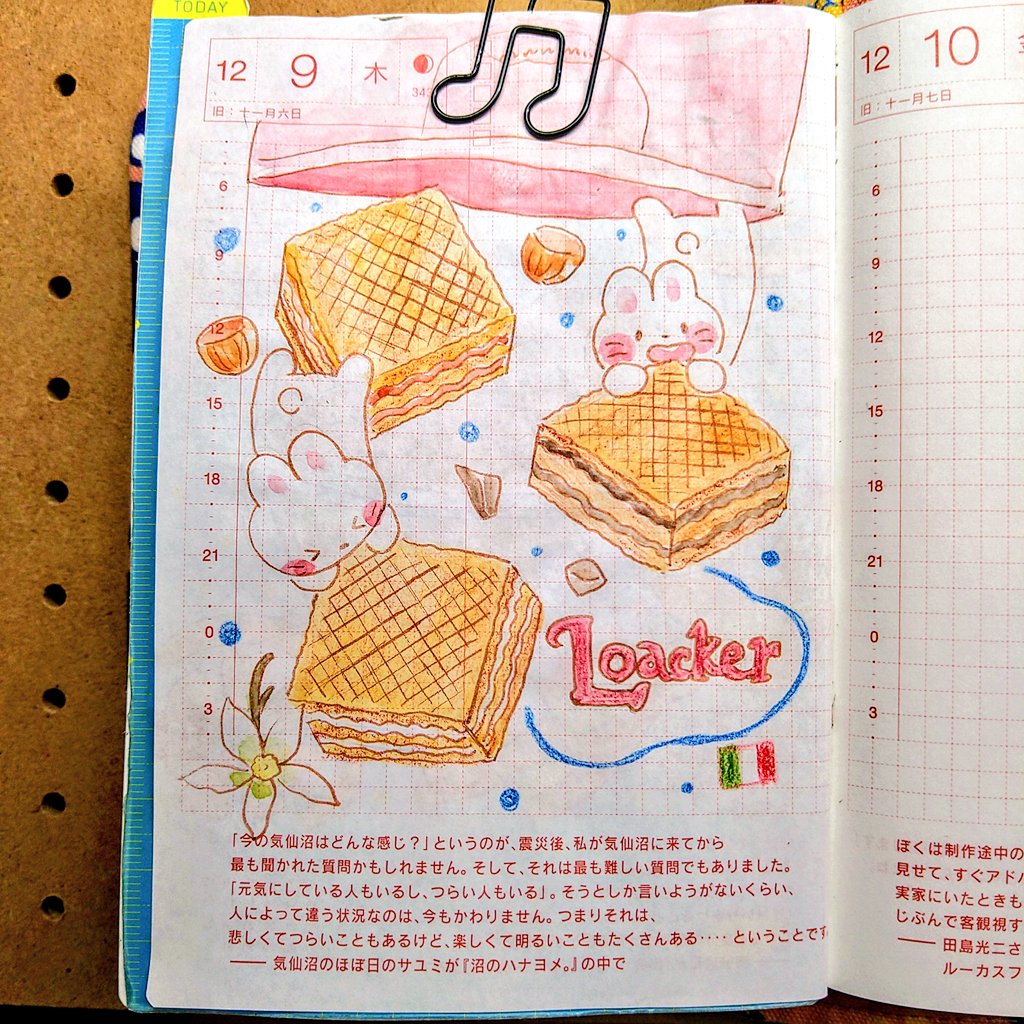 TODAY
12 9 木
34
旧：十一月六日
6
9
12
15
18
21
0
3
Loacker
「今の気仙沼はどんな感じ？」というのが、震災後、私が気仙沼に来てから
最も聞かれた質問かもしれません。そして、それは最も難しい質問でもありました。
「元気にしている人もいるし、つらい人もいる」。そうとしか言いようがないくらい、
人によって違う状況なのは、今もかわりません。つまりそれは、
悲しくてつらいこともあるけど、楽しくて明るいこともたくさんある‥‥ということです
—— 気仙沼のほぼ日のサユミが『沼のハナヨメ。』の中で
12 10
旧：十一月七日
6
9
12
15
18
21
0
3
ぼくは制作途中の
見せて、すぐアド
実家にいたときも
じぶんで客観視す
—— 田島光二さ
ルーカスフ